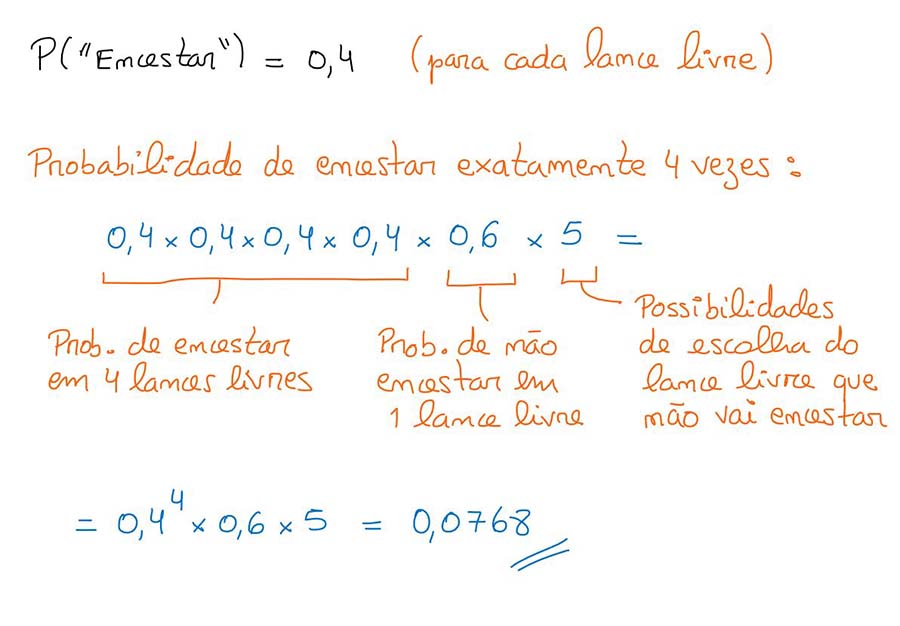 P("Encestar") = 0,4 (para cada lance livre)
Probabilidade de encestar exatamente 4 vezes :
0,4 × 0,4 × 0,4 × 0,4 × 0,6 × 5 =
Prob. de encestar
em 4 lances livres
Prob. de não
encestar em
1 lance livre
Possibilidades
de escolha do
lance livre que
não vai encestar
= 0,4⁴ × 0,6 × 5 = 0,0768